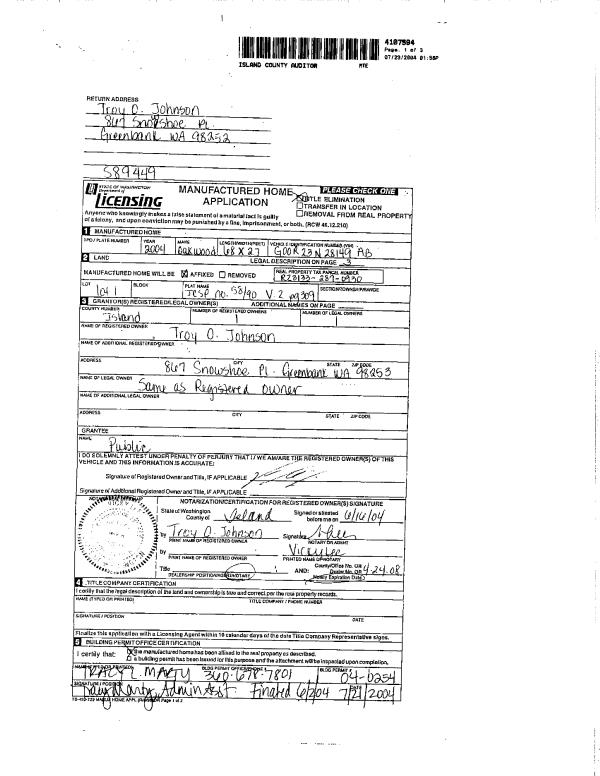 4107594
Page: 1 of 3
07/23/2004 01:58P
ISLAND COUNTY AUDITOR MTE
RETURN ADDRESS
Troy O. Johnson
867 Snowshoe Pl.
Greenbank WA 98252
589449
STATE OF WASHINGTON
Department of
licensing
MANUFACTURED HOME
APPLICATION
PLEASE CHECK ONE
TITLE ELIMINATION
TRANSFER IN LOCATION
REMOVAL FROM REAL PROPERTY
Anyone who knowingly makes a false statement of a material fact is guilty
of a felony, and upon conviction may be punished by a fine, imprisonment, or both. (RCW 46.12.210)
1 MANUFACTURED HOME
TPO / PLATE NUMBER YEAR MAKE LENGTH/WIDTH(FEET) VEHICLE IDENTIFICATION NUMBER (VIN)
2004 Oakwood 68 X 27 GOOR23N28149 AB
2 LAND LEGAL DESCRIPTION ON PAGE 3
MANUFACTURED HOME WILL BE AFFIXED REMOVED REAL PROPERTY TAX PARCEL NUMBER
R23133-287-0930
LOT BLOCK PLAT NAME SECTION/TOWNSHIP/RANGE
lot 1 JCSP no. 58/90 V. 2 pg309
3 GRANTOR(S) REGISTERED/LEGAL OWNER(S) ADDITIONAL NAMES ON PAGE
COUNTY NUMBER NUMBER OF REGISTERED OWNERS NUMBER OF LEGAL OWNERS
Island
NAME OF REGISTERED OWNER
Troy O. Johnson
NAME OF ADDITIONAL REGISTERED OWNER
ADDRESS CITY STATE ZIP CODE
867 Snowshoe Pl. Greenbank WA 98253
NAME OF LEGAL OWNER
Same as Registered owner
NAME OF ADDITIONAL LEGAL OWNER
ADDRESS CITY STATE ZIP CODE
GRANTEE
NAME
Public
I DO SOLEMNLY ATTEST UNDER PENALTY OF PERJURY THAT I / WE AM/ARE THE REGISTERED OWNER(S) OF THIS
VEHICLE AND THIS INFORMATION IS ACCURATE:
Signature of Registered Owner and Title, IF APPLICABLE
Signature of Additional Registered Owner and Title, IF APPLICABLE
NOTARIZATION/CERTIFICATION FOR REGISTERED OWNER(S) SIGNATURE
State of Washington
County of Island
Signed or attested
before me on 6/16/04
by Troy O. Johnson Signature
PRINT NAME OF REGISTERED OWNER NOTARY OR AGENT
by
PRINT NAME OF REGISTERED OWNER PRINTED NAME OF NOTARY
Title AND: County/Office No. OR
Dealer No. OR 4.24.08
DEALERSHIP POSITION/AGENT/NOTARY Notary Expiration Date
4 TITLE COMPANY CERTIFICATION
I certify that the legal description of the land and ownership is true and correct per the real property records.
NAME (TYPED OR PRINTED) TITLE COMPANY / PHONE NUMBER
SIGNATURE / POSITION DATE
Finalize this application with a Licensing Agent within 10 calendar days of the date Title Company Representative signs.
5 BUILDING PERMIT OFFICE CERTIFICATION
I certify that: the manufactured home has been affixed to the real property as described.
a building permit has been issued for this purpose and the attachment will be inspected upon completion.
TRACY L. MARTY 360-678-7801 04-0254
SIGNATURE / POSITION DATE
Tracy Marty, Admin Asst Finaled 6/2/04 7/21/2004